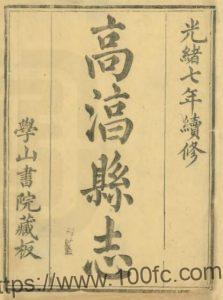 光緒七年續修
高湻縣志
學山書院藏板
https://www.100fc.com